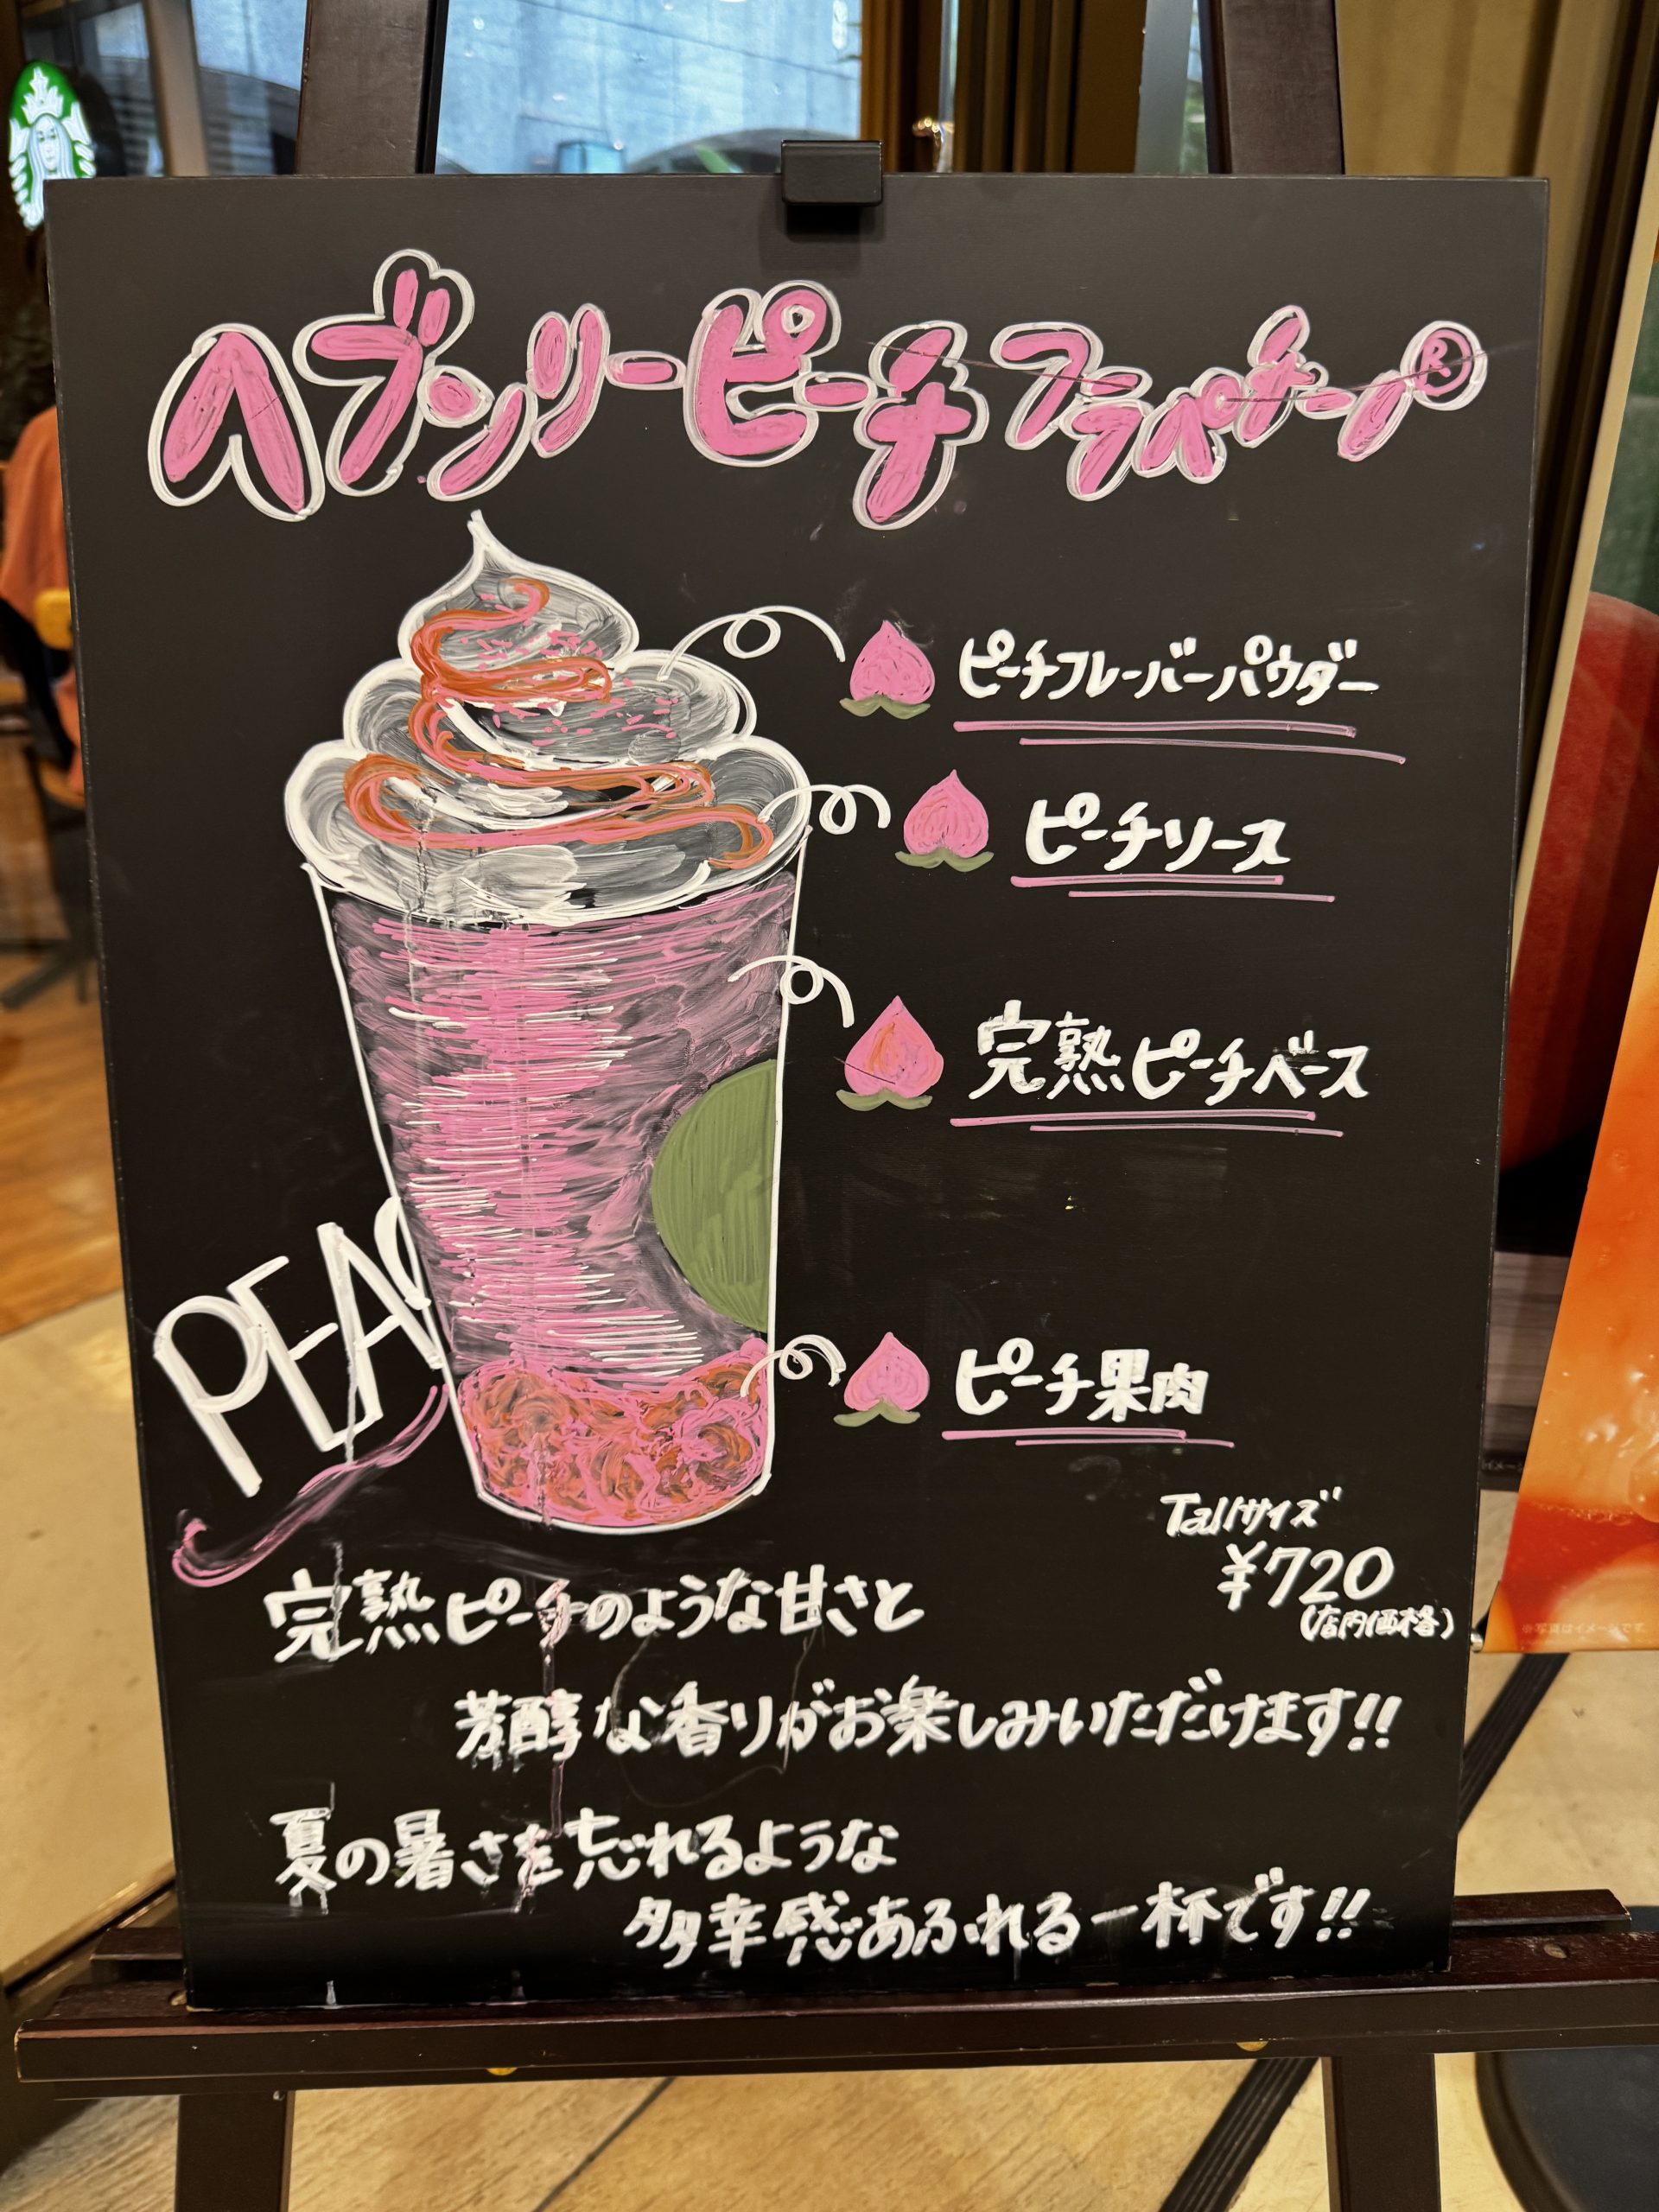 ヘブンリーピーチフラペチーノ®
ピーチフレーバーパウダー
ピーチソース
完熟ピーチベース
ピーチ果肉
PEAC
Tallサイズ
¥720
(店内価格)
完熟ピーチのような甘さと
芳醇な香りがお楽しみいただけます!!
夏の暑さを忘れるような
多幸感あふれる一杯です!!